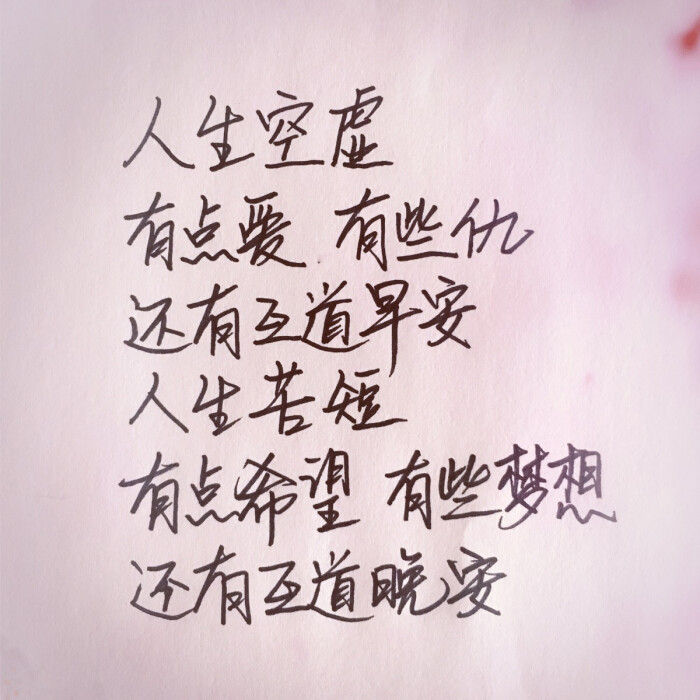 人生空虚
有点爱 有些仇
还有互道早安
人生苦短
有点希望 有些梦想
还有互道晚安